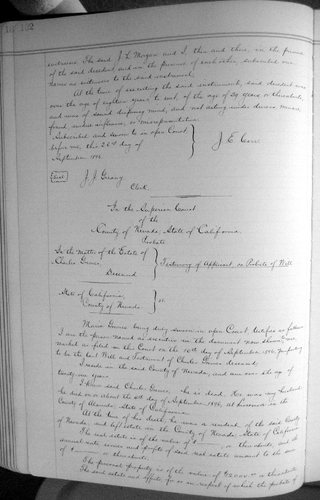 testimony. The said J L Morgan and I, then and there, in the presence
of the said decedent, and in the presence of each other, subscribed our
names as witnesses to the said instrument.
At the time of executing the said instrument, said decedent was
over the age of eighteen years to wit, of the age of 59 years or thereabouts,
and was of sound disposing mind, and not acting under duress menace,
fraud, undue influence, or misrepresentation.
Subscribed and sworn to in open Court
before me, this 22nd day of
September 1896
J. E. Carr
Seal
J. J. Greany
Clerk
In the Superior Court
of the
County of Nevada, State of California.
Probate
In the Matter of the Estate of
Charles
Deceased
Testimony of Applicant, on Probate of Will
State of California,
County of Nevada
ss
being duly sworn in open Court, testifies as follows:
I am the person named as executrix in the document now shown me,
marked as filed in this Court on the 10th day of September 1896, purporting
to be the last Will and Testament of Charles deceased,
I reside in the said County of Nevada, and am over the age of
twenty one years
I knew said Charles he is dead. He was my husband
he died on or about the day of September, 1896, at in the
County of State of California.
At the time of his death, he was a resident of the said County
of Nevada, and left estate in the County of Nevada, State of California
The real estate is of the value of $ or thereabouts, and the
annual rents issues and profits of said real estate amount to the sum
of $ or thereabouts.
The personal property is of the value of or thereabouts
The said estate and effects, for or in respect of which the probate of